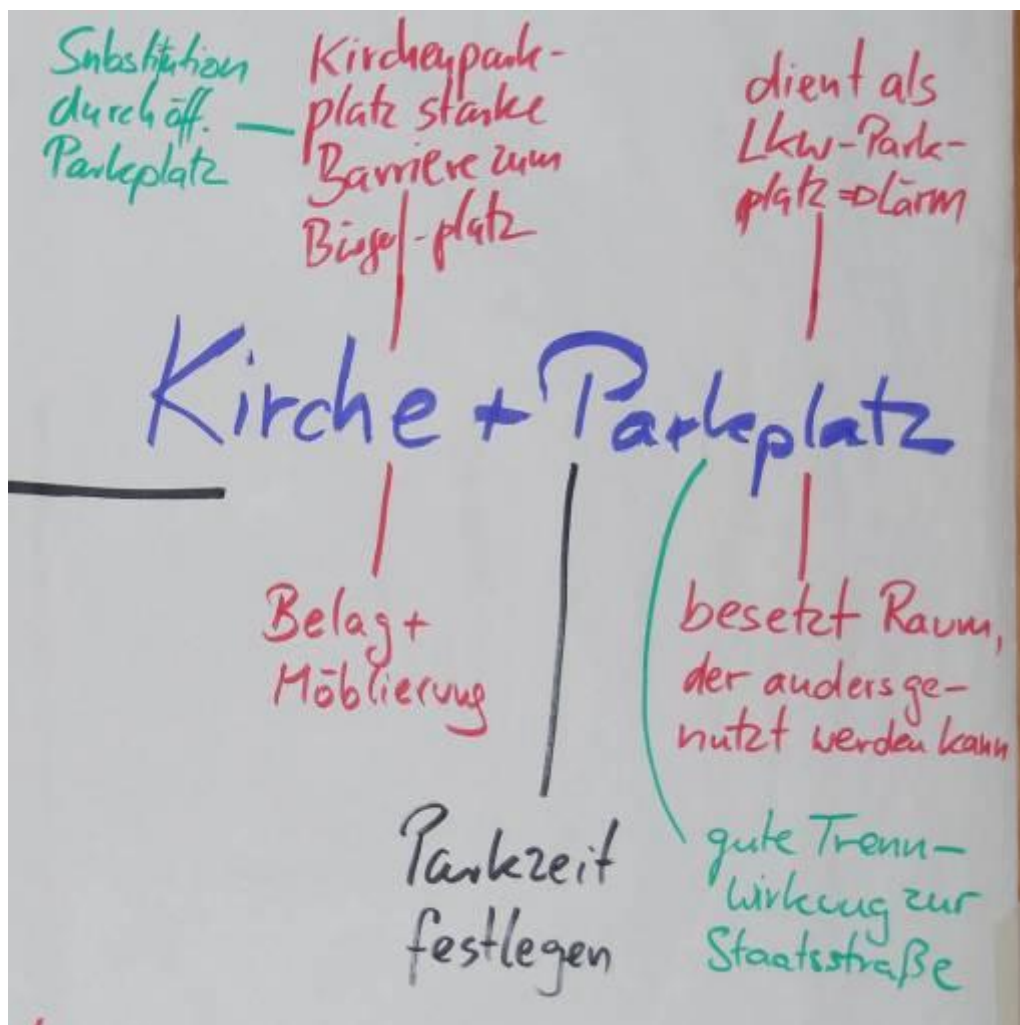 Substitution
durch öff.
Parkplatz
Kirchenpark-
platz starke
Barriere zum
-platz
dient als
Lkw-Park-
platz ⇒ Lärm
Kirche + Parkplatz
Belag +
Möblierung
besetzt Raum,
der anders ge-
nutzt werden kann
Parkzeit
festlegen
gute Trenn-
wirkung zur
Staatsstraße